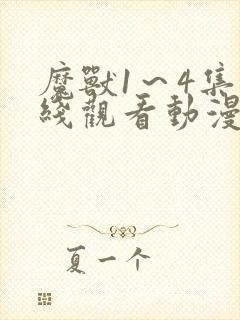 魔獸1～4集
綫觀看動漫
夏一个